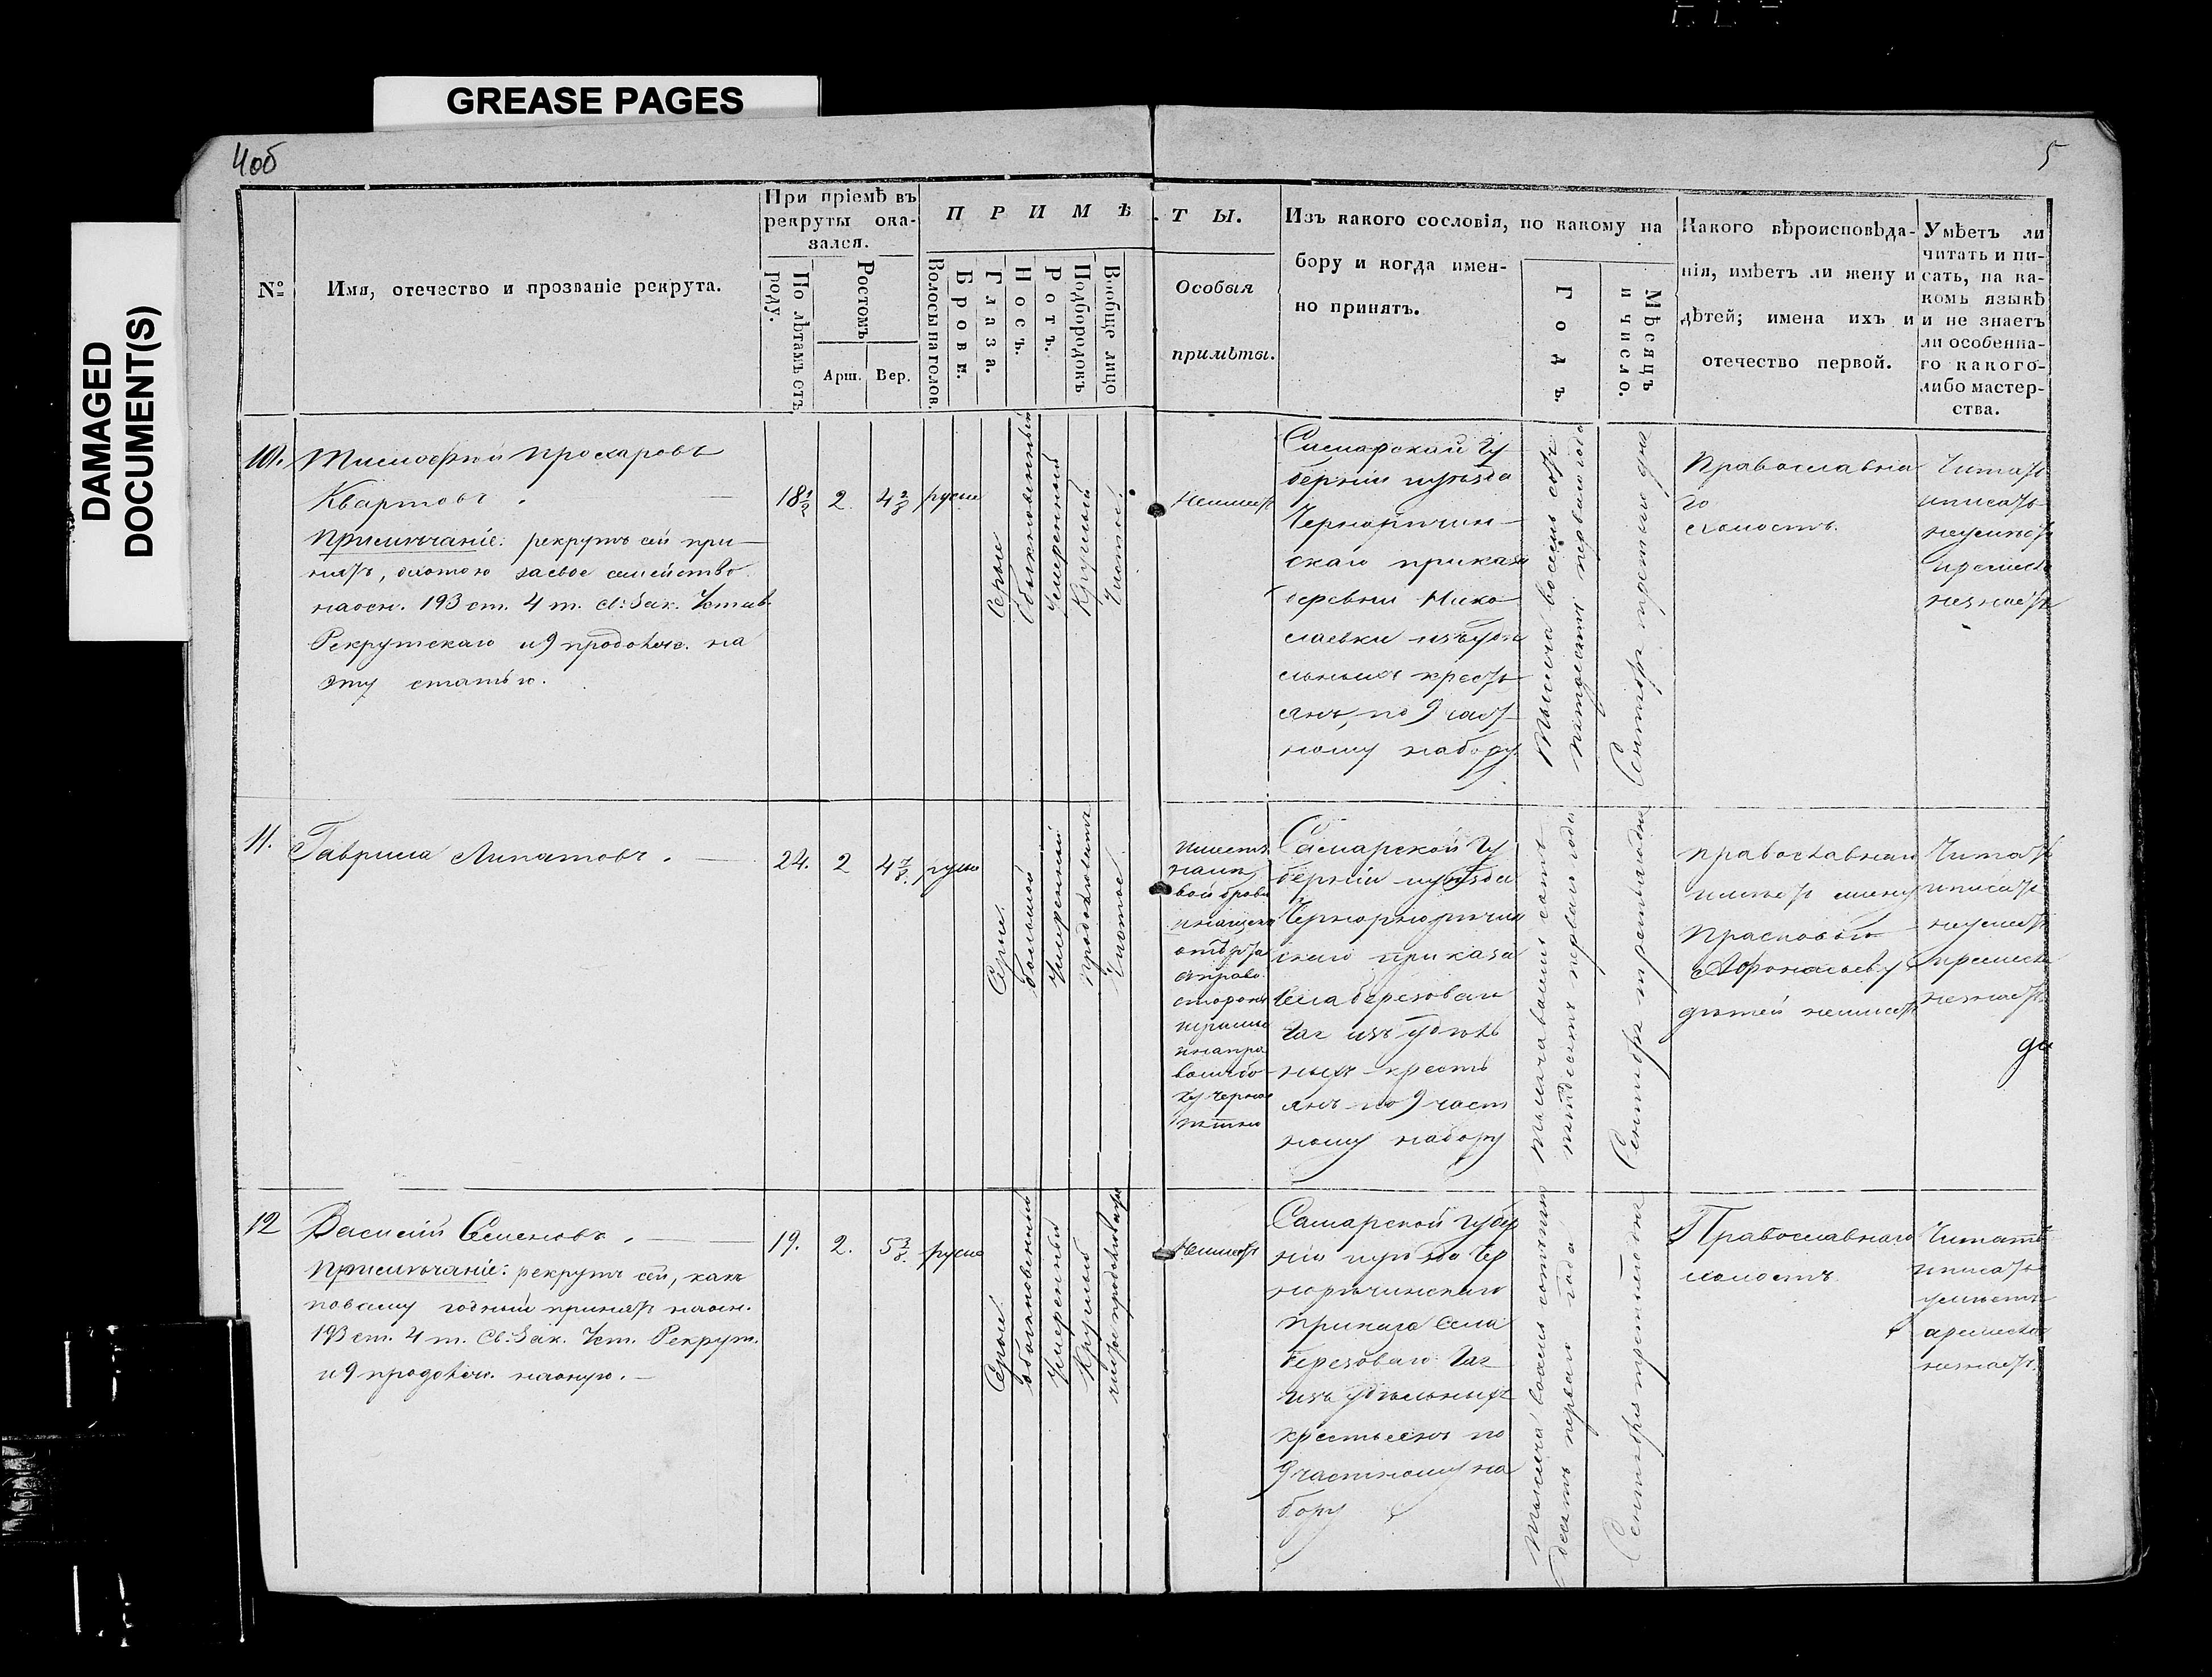 GREASE PAGES
DAMAGED
DOCUMENT(S)
4об
5
№
Имя, отечество и прозваніе рекрута.
При пріемѣ въ
рекруты ока-
зался.
По лѣтамъ отъ
роду.
Ростомъ
Арш.
Вер.
ПРИМѢ
Волосы на голов.
Брови.
Глаза.
Носъ.
Ротъ.
Подбородокъ
Вообще лицо
ТЫ.
Особыя
примѣты.
Изъ какого сословія, по какому на
бору и когда имен-
но принятъ.
Годъ.
Мѣсяцъ
и число.
Какого вѣроисповѣда-
нія, имѣетъ ли жену и
дѣтей; имена ихъ и
отечество первой.
Умѣетъ ли
читать и пи-
сать, на ка-
комъ языкѣ
и не знаетъ
ли особенна-
го какого-
либо мастер-
ства.
10.
Тимофей Прохаровъ
Квартовъ.
Примѣчаніе: рекрутъ сей при-
нятъ, охотою засвое семейство
наосн. 193 ст. 4 т. Св: Зак. Устав.
Рекрутскаго и 9 продолж. на
эту статью.
18½
2
русые
Серые
Обыкновенный
Умеренный
Круглый
Чистый
Неимеетъ
Самарской Гу
берніи иуѣзда
Чернорѣчин-
скаго приказа
деревни Нико
лаевки изъудѣ
льныхъ кресть
янъ, по 9 част
ному набору.
Тысяча восемь сотъ
пятдесятъ перваго года
Сентября третьяго дня
Православна
го
холостъ.
Читать
иписать
неумѣетъ
ремесла
незнаетъ
11.
Гаврила Липатовъ.
24.
2
4⅞
русые
Серые
большой
Умеренный
продолговатъ
Чистое
имеетъ
налѣ
вой брови
отъ рта
справо
стороны
шрамы
инапра
вомъ бо
ку черное
пятно
Самарской Гу
берніи иуѣзда
Чернорѣчин
скаго приказа
Села березоваго
Гая изъ удѣль
ныхъ кресть
янъ по 9 част
ному набору
Тысяча восемь сотъ
пятдесятъ перваго года
Сентября третьягодня
православнаго
имѣетъ жену
Прасковью
Афонасьеву
дѣтей неимеетъ
Читать
иписать
неумеетъ
ремесла
незнаетъ
12
Василій Семеновъ.
Примѣчаніе: рекрутъ сей, какъ
повсему годный принятъ наосн.
193 ст. 4 т. Св: Зак. Уст. Рекрут.
и 9 продолж. наоную.
19.
2.
5⅜
русые
Серые
обыкновенный
Умеренный
Круглый
Неимеетъ
Самарской губер
ніи иуѣзда Чер
норѣчинскаго
приказа Села
Березоваго Гая
изъ удѣльныхъ
крестьянъ по
9 частному на
бору
Тысяча восемь сотъ пят
десятъ перваго года
Сентября третьягодня
Православнаго
холостъ
Читать
иписать
умѣетъ
аремесла
незнаетъ.